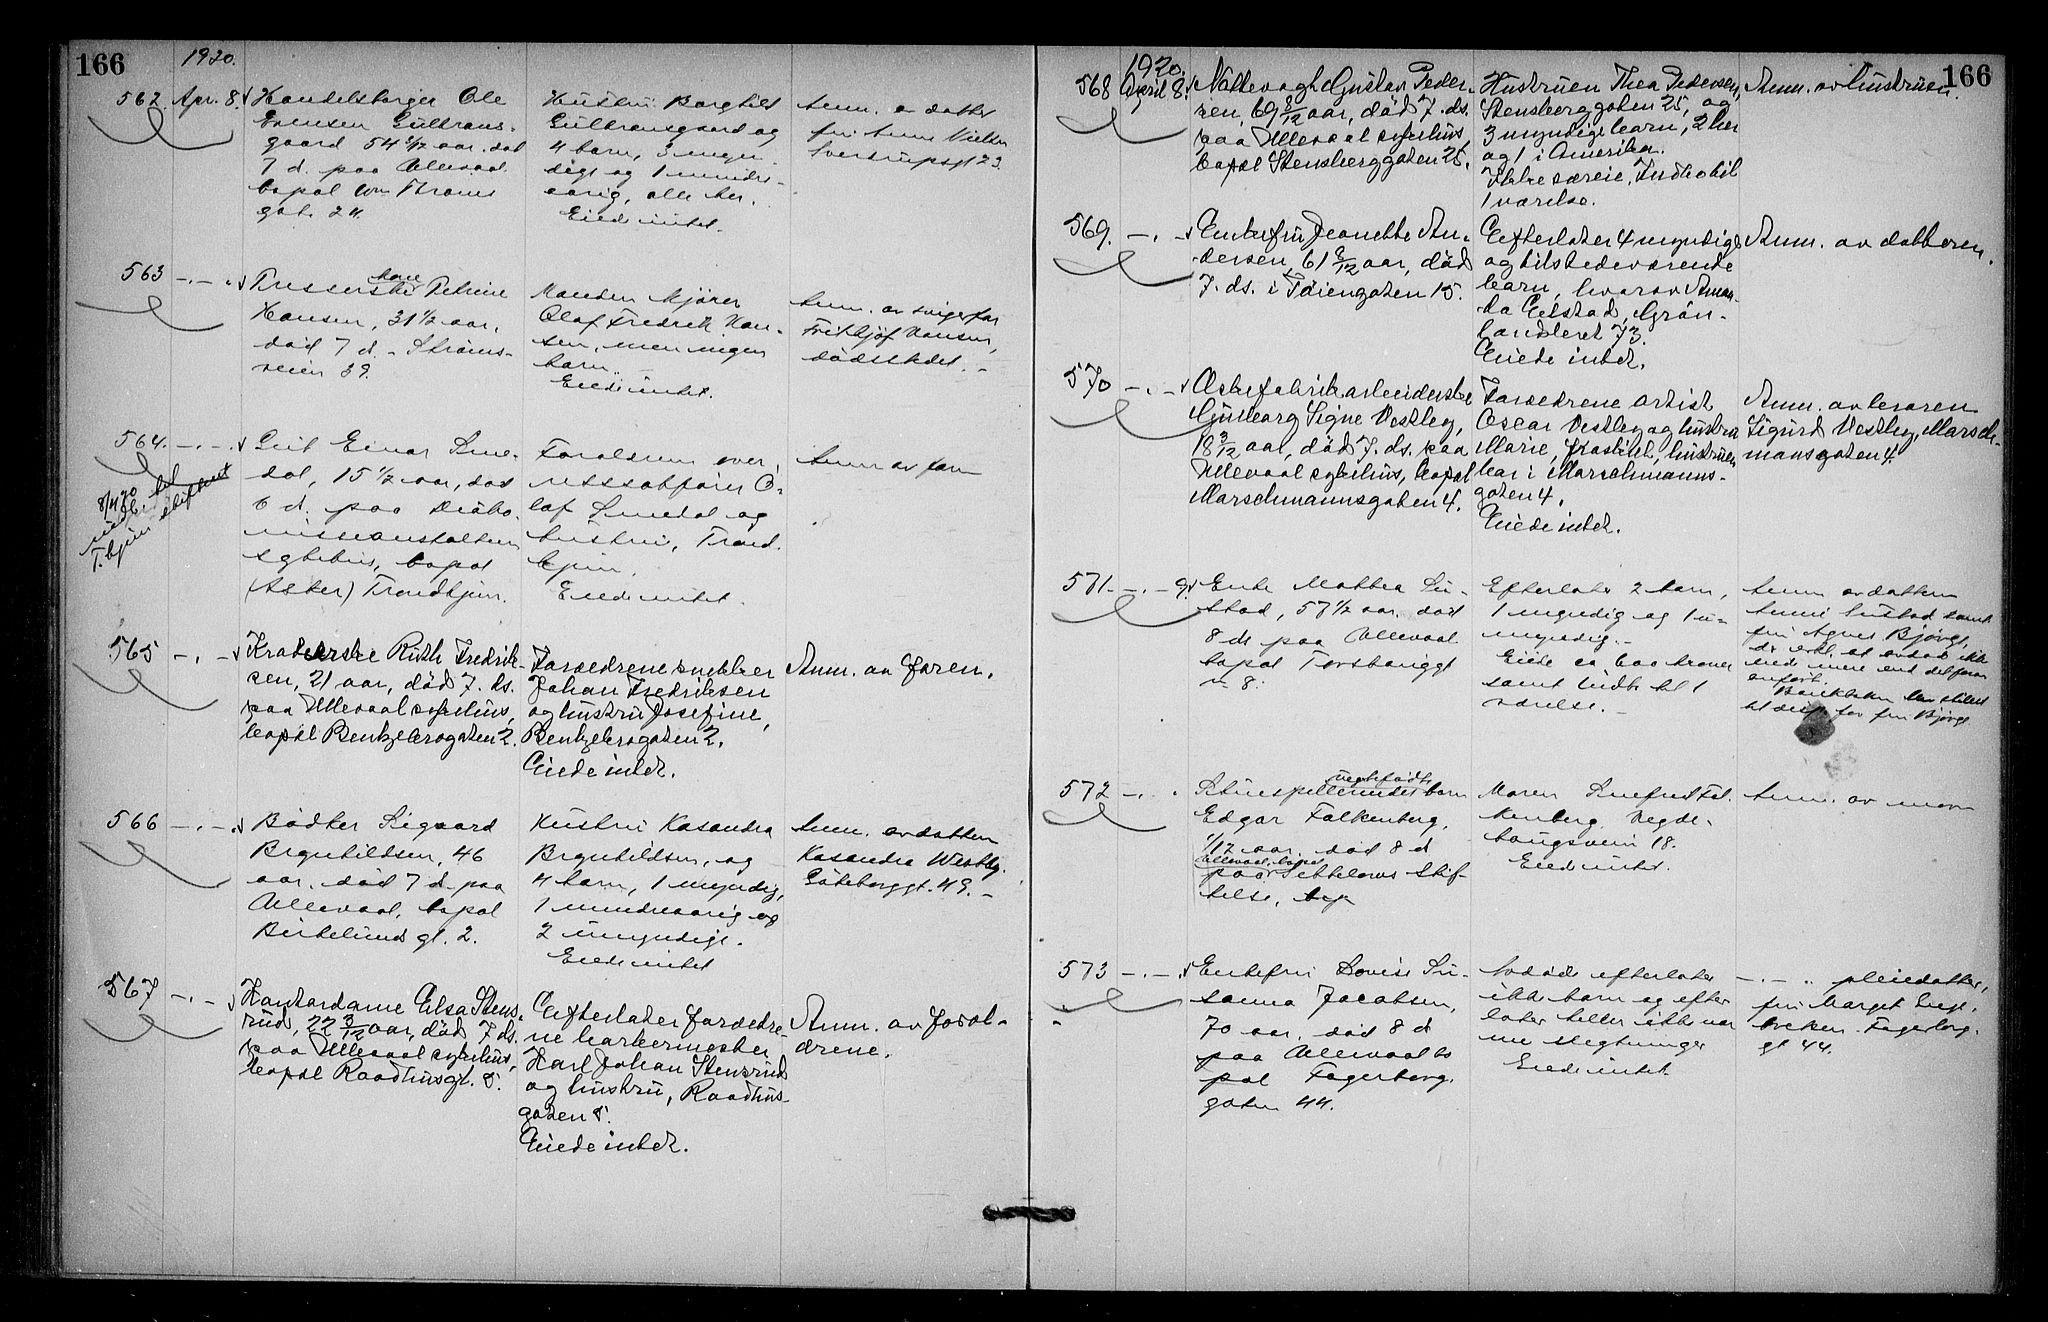 166
1920.
562. Apr. 8.
Handelsborger Ole
Evensen Gulbrans-
gaard 54 1/2 aar. død
7 d. paa Ullevaal.
bopæl Wm Thranes
gate 24.
Hustru Borghild
Gulbransgaard og
4 barn, 3 myn-
dige og 1 mindre-
aarig, alle her.
Eiede intet.
Anm. av datter
frk.
563 -.-
kone
Presserske Petrine
Hansen, 31 1/2 aar,
død 7 d. - Strøms-
veien 39.
Manden kjører
Olaf Fredrik Han-
sen, men ingen
barn.
Eiede intet.
Anm. av svigerfar
Frithjof Hansen,
dødsstedet. -
564. -.-
8/4 20
T.hjem skifteret
Einar
dal, 15 1/2 aar, død
6 d. paa Diako-
nisseanstaltens
sykehus, bopæl
(Asker) Trondhjem.
Forældrene over-
retssakfører O-
laf og
hustru, Trond-
hjem.
Eiede intet.
Anm. av faren
565 -.-
Ruth Fredrik-
sen, 21 aar, død 7. ds.
paa Ullevaal sykehus,
bopæl Bentzebrogaten 2.
Forældrene snekker
Johan Fredriksen
og hustru Josefine,
Bentzebrogaten 2.
Eiede intet.
Anm. av faren.
566 -.-
Bødker Sigvard
Brynhildsen, 46
aar, død 7 d. paa
Ullevaal, bopæl
Birkelunds gt. 2.
Hustru Kasandra
Brynhildsen, og
4 barn, 1 myndig,
1 mindreaarig og
2 umyndige.
Eiede intet
Anm. av datteren
Kasandra Westby,
Göteborggt. 49. -
567 -.-
Kontordame Elsa Stens-
rud, 22 3/12 aar, død 7 ds.
paa Ullevaal sykehus,
bopæl Raadhusgt. 8.
Efterlater foræld-
ne barkermester
Karl Johan Stensrud
og hustru, Raadhus-
gaten 8.
Eiede intet.
Anm. av foræl-
drene.
166
1920.
568 April 8.
Nattevagt Gustav Peder-
sen, 69 8/12 aar, død 7. ds.
paa Ullevaal sykehus,
bopæl Stensberggaten 25.
Hustruen Thea Pedersen,
Stensberggaten 25, og
3 myndige barn, 2 her
og 1 i Amerika.
Ikke særeie. Indbo til
1 værelse.
Anm. av hustruen.
569. -.-
Enkefru Jeanette An-
dersen, 61 8/12 aar, død
7. ds. i Tøiengaten 15.
Efterlater 4 myndige
og tilstedeværende
barn, hvorav Aman-
da Eilstad, Grøn-
landsleret 73.
Eiede intet.
Anm. av datteren.
570 -.-
Æskefabrikarbeiderske
Gjinborg Signe Vestley,
18 3/12 aar, død 7. ds. paa
Ullevaal sykehus, bopæl
Marschmannsgaten 4.
Forældrene artist
Oscar Vestley og hustru
Marie, fraskilt, hustruen
bor i Marschmanns-
gaten 4.
Eiede intet.
Anm. av broren
Sigurd Vestley, Marsch-
mansgaten 4.
571. -.- 9.
Enke Mathea Lu-
stad, 57 1/2 aar, død
8 ds paa Ullevaal
bopæl Torsbergt
n 8.
Efterlater 2 barn,
1 myndig og 1 u-
myndig. -
Eiede ca. 600 kroner
samt indbo til 1
værelse. -
Anm av datteren
Lustad samt
fru Agnes Bjørge,
anført.
Bankboken
for fru Bjørge
572 -.-
uegtefødte
Skuespillerindes barn
Edgar Falkenberg,
1/12 aar, død 8 d
Ullevaal, bopæl
paa Stif-
telse,
Moren Fal-
kenberg,
haugsvein 18.
Eiede intet.
Anm. av moren
573 -.-
Enkefru Lovise Su-
sanna Jacobsen,
70 aar, død 8 d
paa Ullevaal bo
pæl Fagerborg-
gaten 44.
Avdøde efterlater
ikke barn og efter
later heller ikke nær
me slegtninger
Eiede intet.
-.- .. pleiedatter,
fru Margit Engl.
Fagerborg-
gt 44.